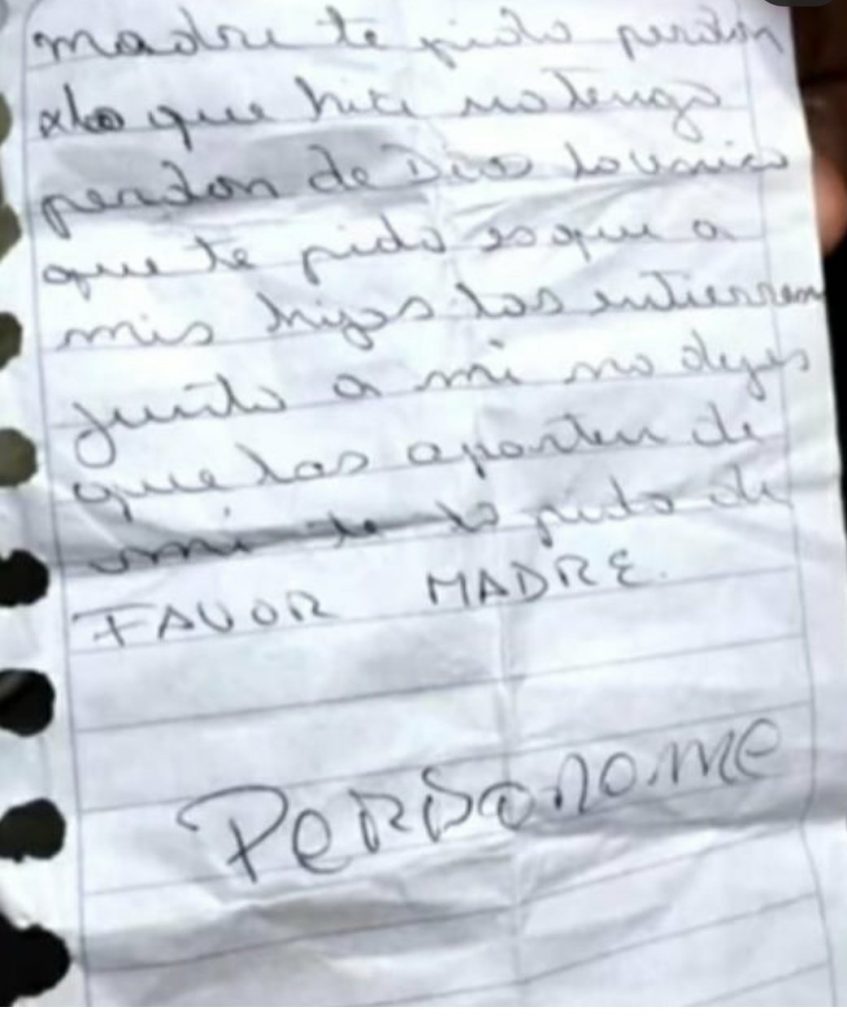 madre te pido perdon
alo que hice no tengo
perdon de Dios lo unico
que te pido es que a
mis hijos los entierren
junto a mi no dejes
que los aparten de
mi te lo pido de
FAVOR MADRE.
PERDONOME